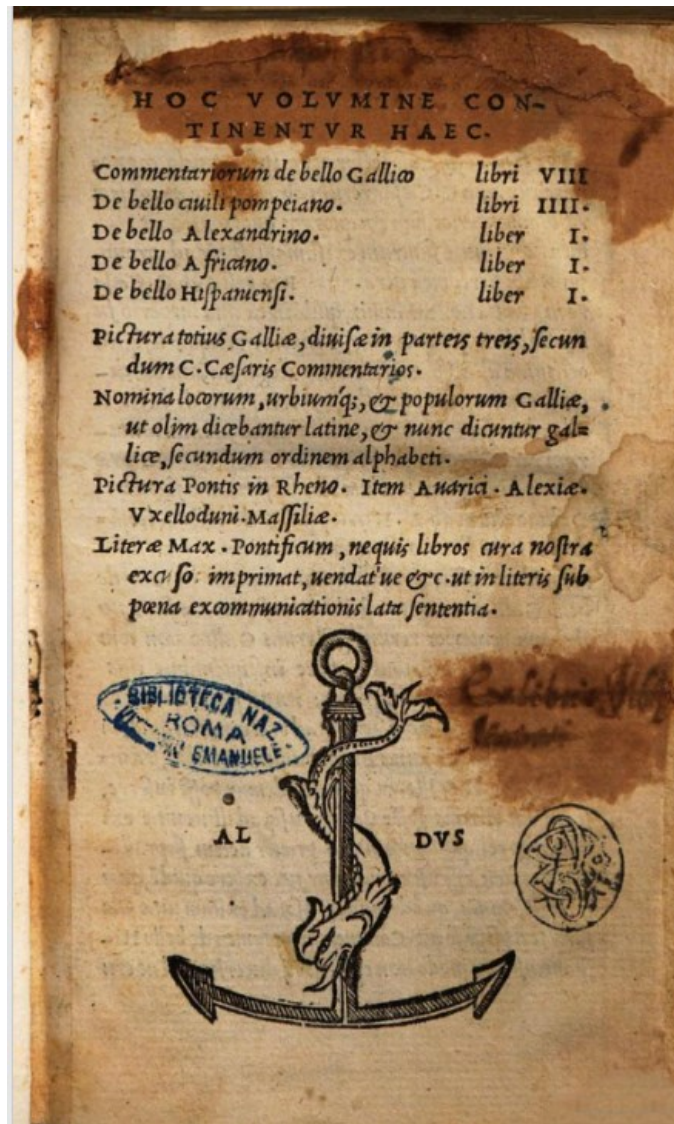 HOC VOLVMINE CON-
TINENTVR HAEC.
Commentariorum de bello Gallico libri VIII
De bello ciuili pompeiano. libri IIII.
De bello Alexandrino. liber I.
De bello Africano. liber I.
De bello Hispaniensi. liber I.
Pictura totius Galliæ, diuisæ in parteis treis, secun
dum C. Cæsaris Commentarios.
Nomina locorum, urbiumq́;, & populorum Galliæ,
ut olim dicebantur latine, & nunc dicuntur gal=
lice, secundum ordinem alphabeti.
Pictura Pontis in Rheno. Item Auarici. Alexiæ.
Vxelloduni. Massiliæ.
Literæ Max. Pontificum, nequis libros cura nostra
excuso imprimat, uendat'ue &c. ut in literis sub
pœna excommunicationis lata sententia.
BIBLIOTECA NAZ.
ROMA
EMANUELE
AL DVS